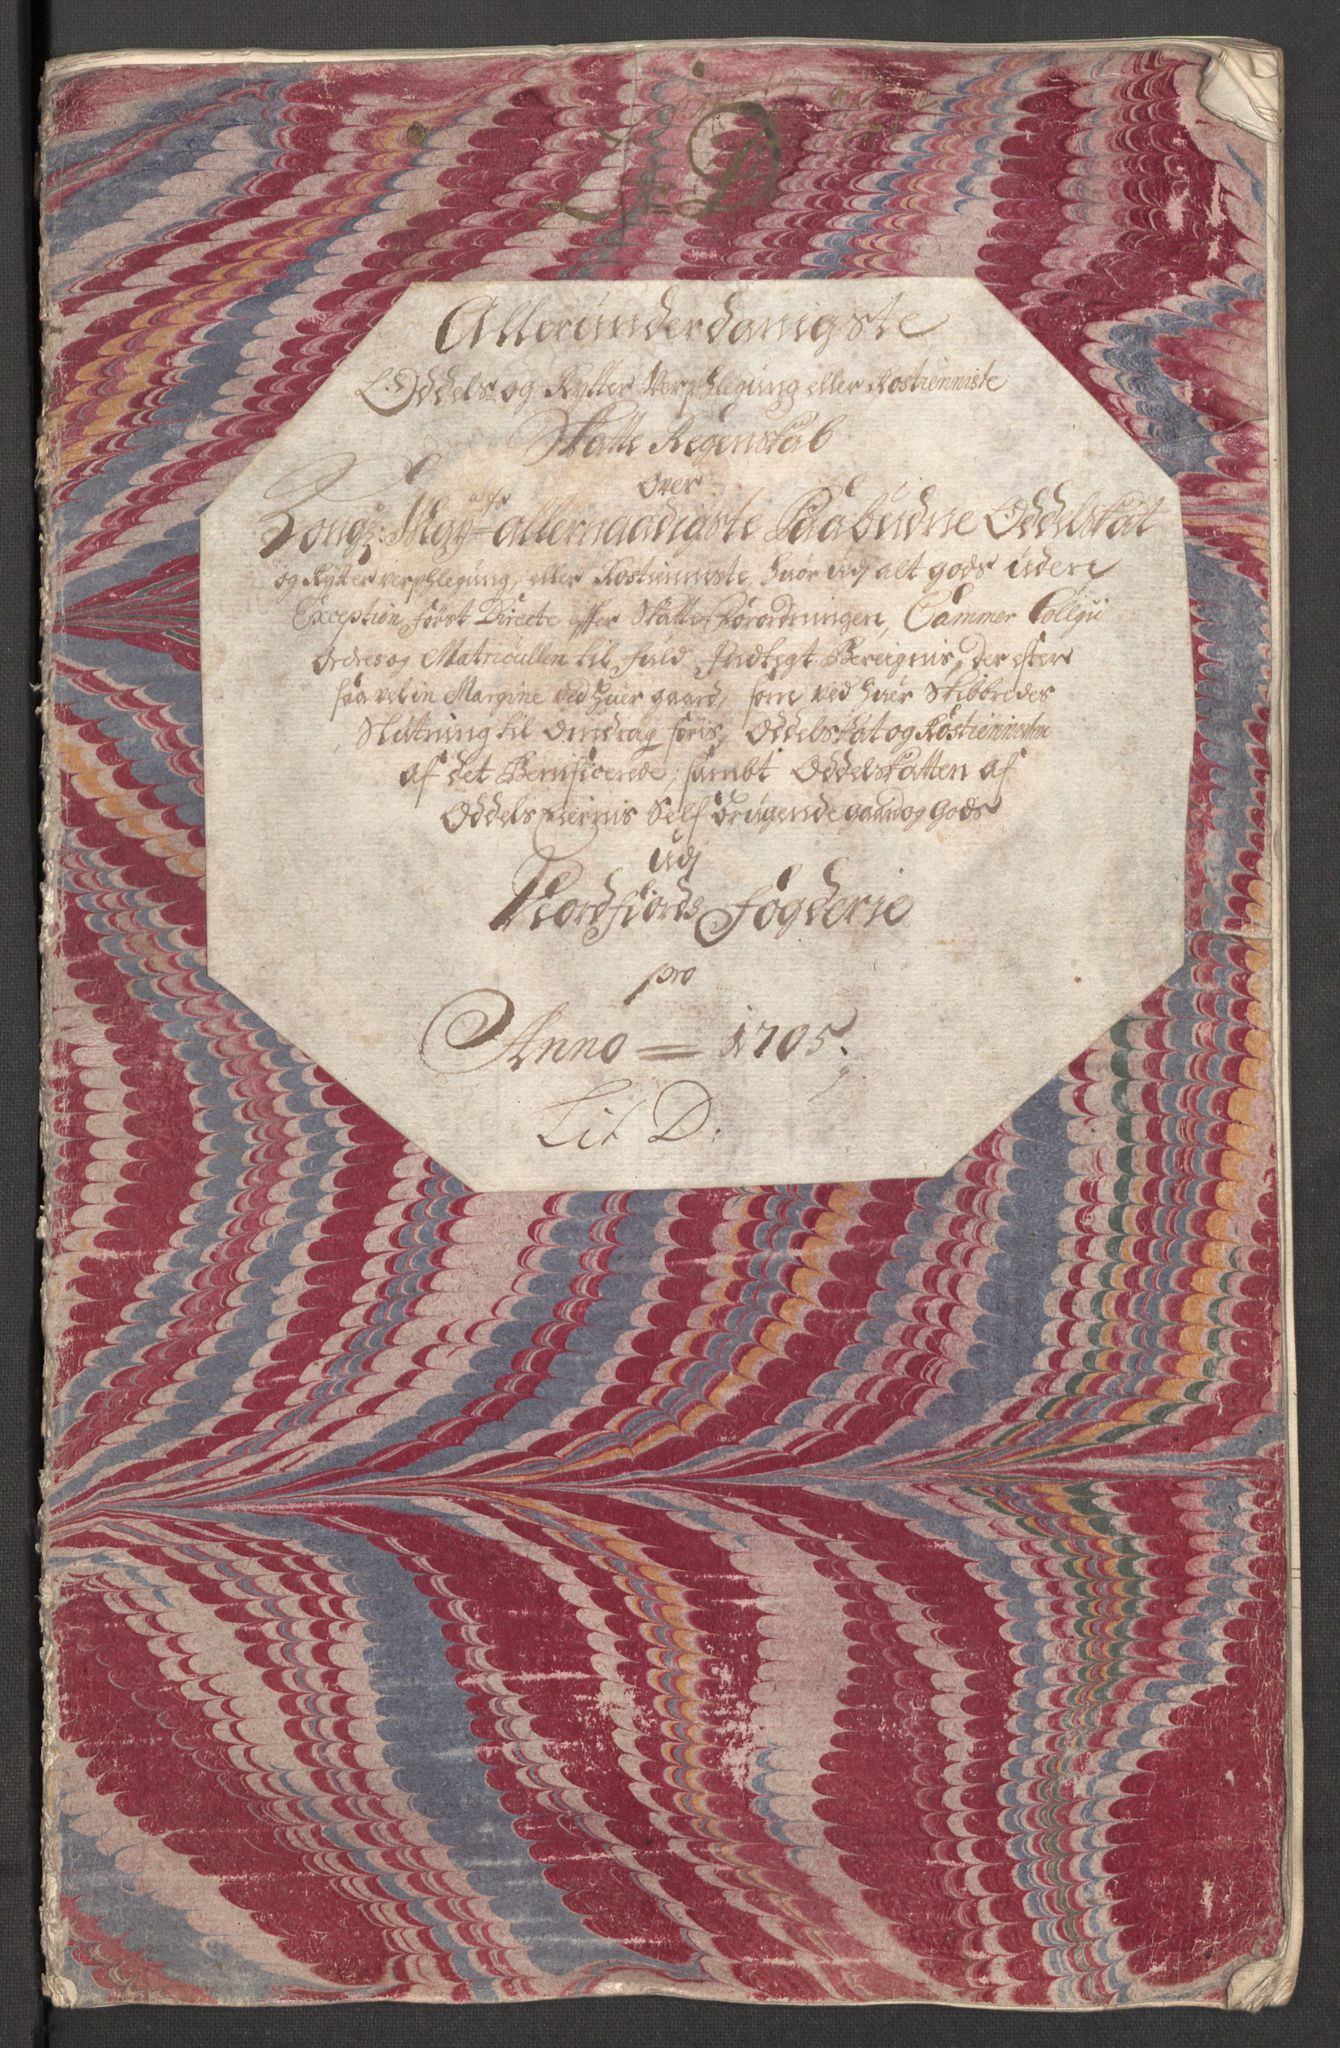 Lit D
Allerúnderdanigste
Oddels og Rytter Verphlegúng eller Rostienniste
Skatte Regenskab
Over
Kongl: May:ts allernaadigste Paabúdne Oddelskat
og Rytterverphlegúng, eller Rostienniste, húor udj alt gods úden
Exception, først Directe effter Skatte forordningen, Cammer Collegii
Ordres og Matricúllen til fúld Indtegt Beregnis, der efter
saa vel in Margine ved húer gaard, som ved húer Skibbredes
Slútning til Omdrag føris, Oddelskat og Rostienisten
af det Benificerede, sambt Oddelskatten af
Oddels Eiernis Self brúgende gaard og Gods
údj
Nordfiords Fogderie
pro
Anno = 1705.
Lit D: